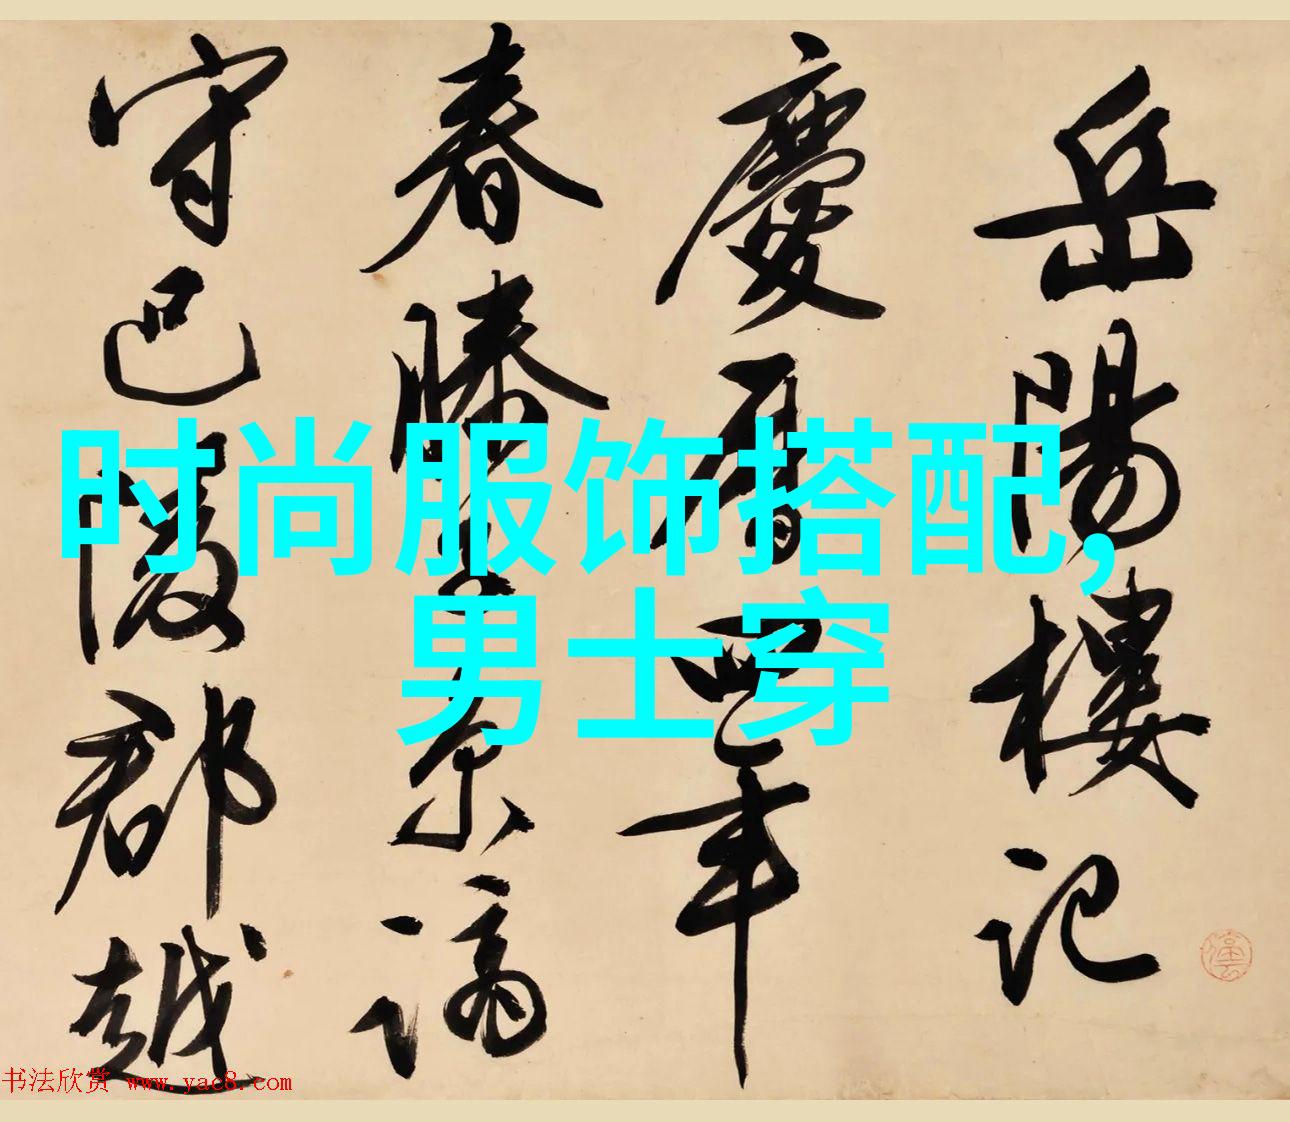 岳陽樓記
慶曆四年
春滕子京謫
守巴陵郡越
时尚服饰搭配,
男士穿
书法欣赏 www.yac8.com